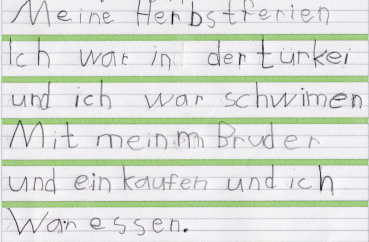 Meine Herbstferien
Ich war in der türkei
und ich war schwimen
Mit meinm Bruder
und ein kaufen und ich
War essen.